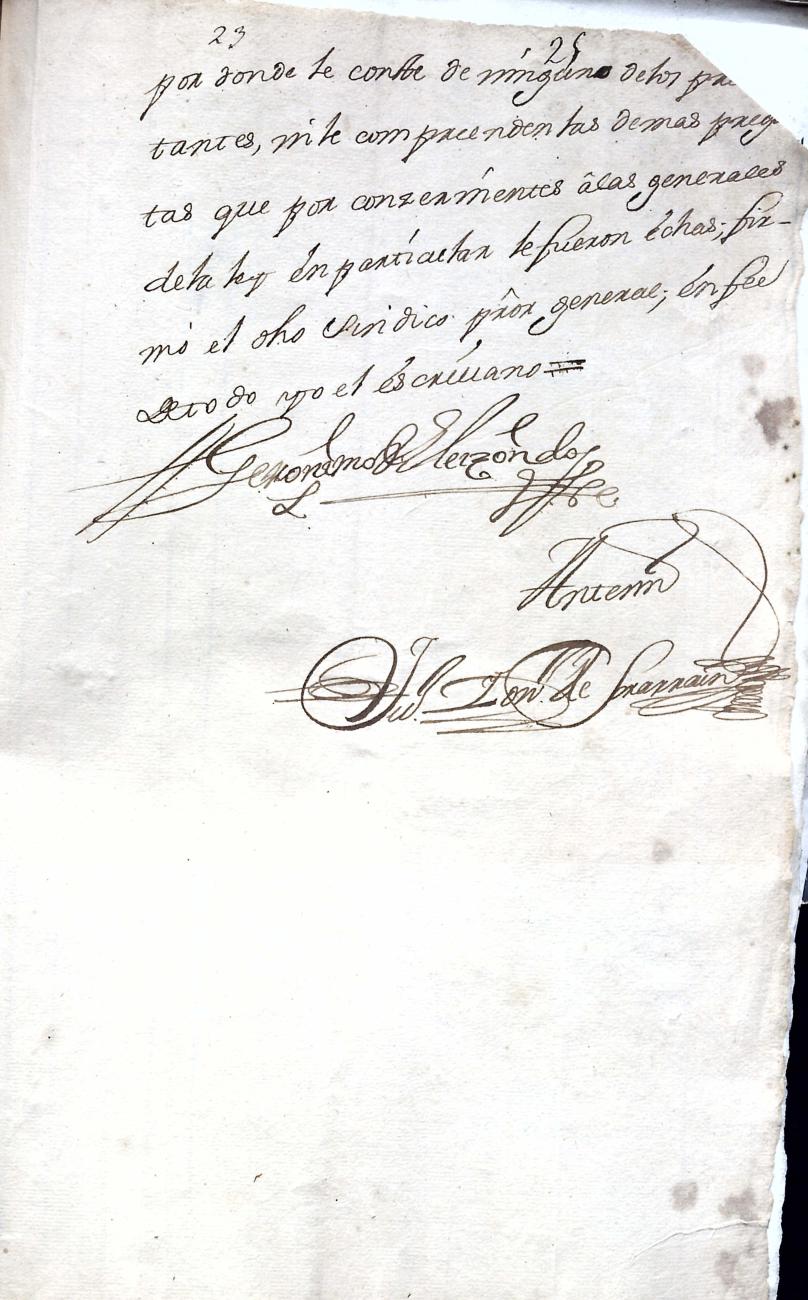 23 25
por donde le conste de ninguno delos pre
tantes, nile comprenden las demas preg
tas que por conzernientes âlas generales
dela ley én partícular le fueron échas; fir-
mó el dho Sindico prôr general; én fee
de todo yo el éscriuano =
Gerónimo de Eleizóndo
Antemi
Zon. de Ibarrain